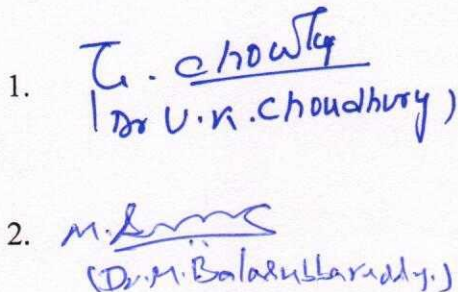 1. U. Chowdy
(Dr U.K. Choudhury)
2. M.
(Dr. M. Balasubbareddy.)